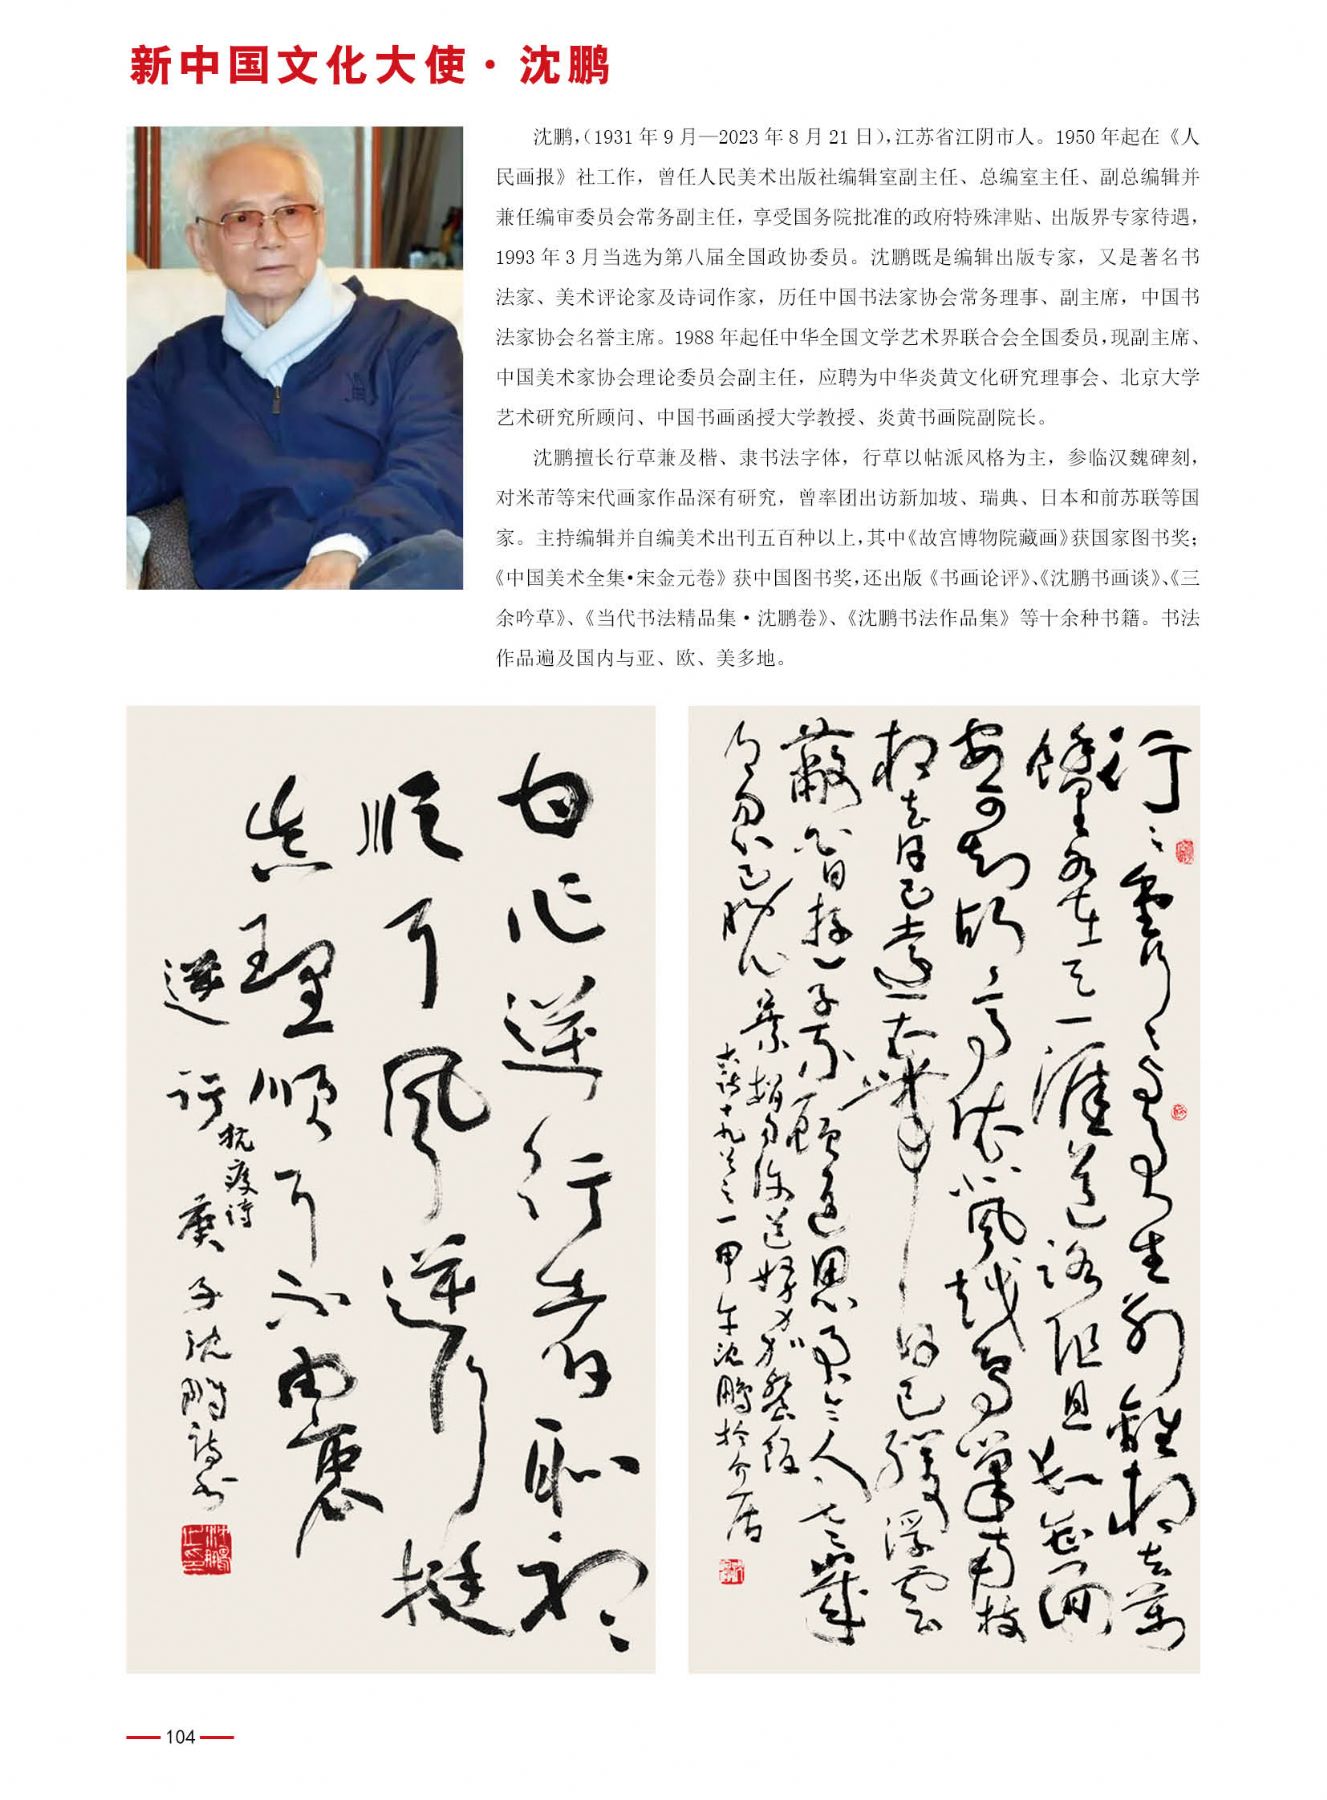 新中国文化大使·沈鹏
沈鹏,(1931年9月—2023年8月21日),江苏省江阴市人。1950年起在《人
民画报》社工作，曾任人民美术出版社编辑室副主任、总编室主任、副总编辑并
兼任编审委员会常务副主任，享受国务院批准的政府特殊津贴、出版界专家待遇，
1993年3月当选为第八届全国政协委员。沈鹏既是编辑出版专家，又是著名书
法家、美术评论家及诗词作家，历任中国书法家协会常务理事、副主席，中国书
法家协会名誉主席。1988年起任中华全国文学艺术界联合会全国委员,现副主席、
中国美术家协会理论委员会副主任，应聘为中华炎黄文化研究理事会、北京大学
艺术研究所顾问、中国书画函授大学教授、炎黄书画院副院长。
沈鹏擅长行草兼及楷、隶书法字体，行草以帖派风格为主，参临汉魏碑刻，
对米芾等宋代画家作品深有研究，曾率团出访新加坡、瑞典、日本和前苏联等国
家。主持编辑并自编美术出刊五百种以上,其中《故宫博物院藏画》获国家图书奖；
《中国美术全集•宋金元卷》获中国图书奖,还出版《书画论评》、《沈鹏书画谈》、《三
余吟草》、《当代书法精品集·沈鹏卷》、《沈鹏书法作品集》等十余种书籍。书法
作品遍及国内与亚、欧、美多地。
行〻重行〻与君生别離相去万
馀里各在天一涯道路阻且长会面
安可知胡马依北風越鸟巢南枝
相去日已遠衣带日已缓浮雲
蔽白日游子不顧返思君令人老歲
月忽已晚弃捐勿復道努力加餐飯
古诗十九首之一甲午沈鵬於介居
白衣逆行者耻
順耳風逆行挺
真理順耳不由衷
逆行
抗疫诗
庚子沈鵬诗书
104